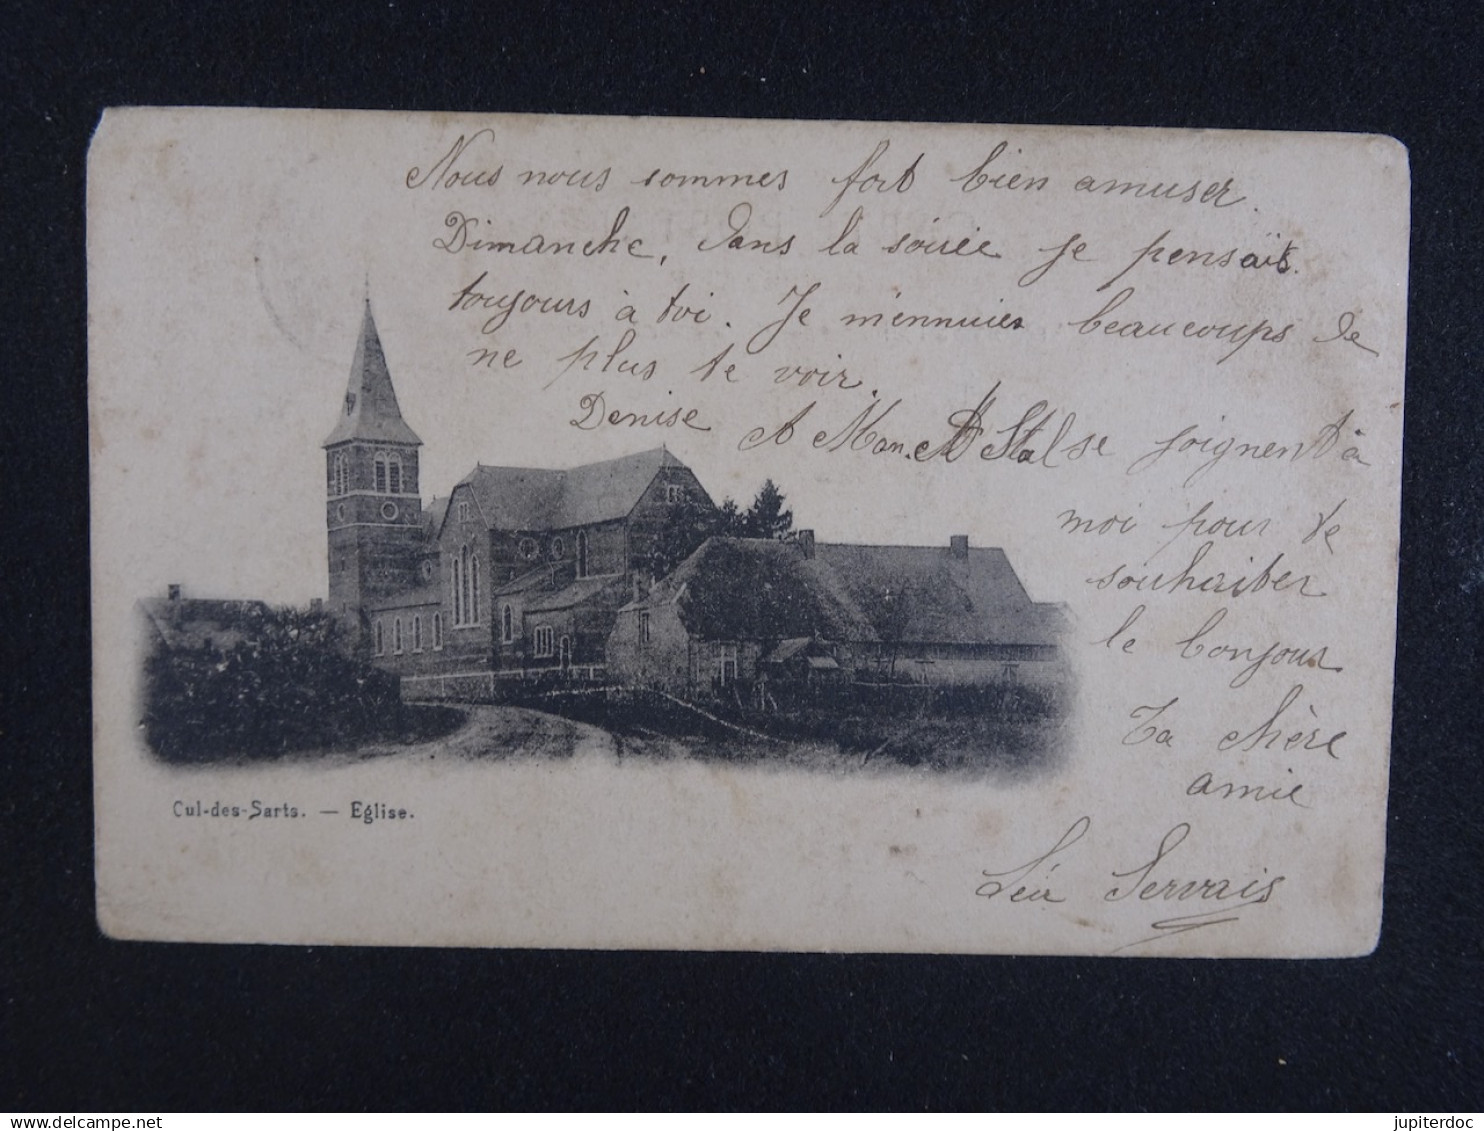 Nous nous sommes fort bien amuser.
Dimanche, dans la soirée je pensait.
toujours à toi. Je m'ennuies beaucoups de
ne plus te voir.
Denise A Man. St Stal se joignent à
moi pour te
souhaiter
le bonjour
Ta chère
amie
Léa Servais
Cul-des-Sarts. — Eglise.
https://www.delcampe.net
jupiterdoc